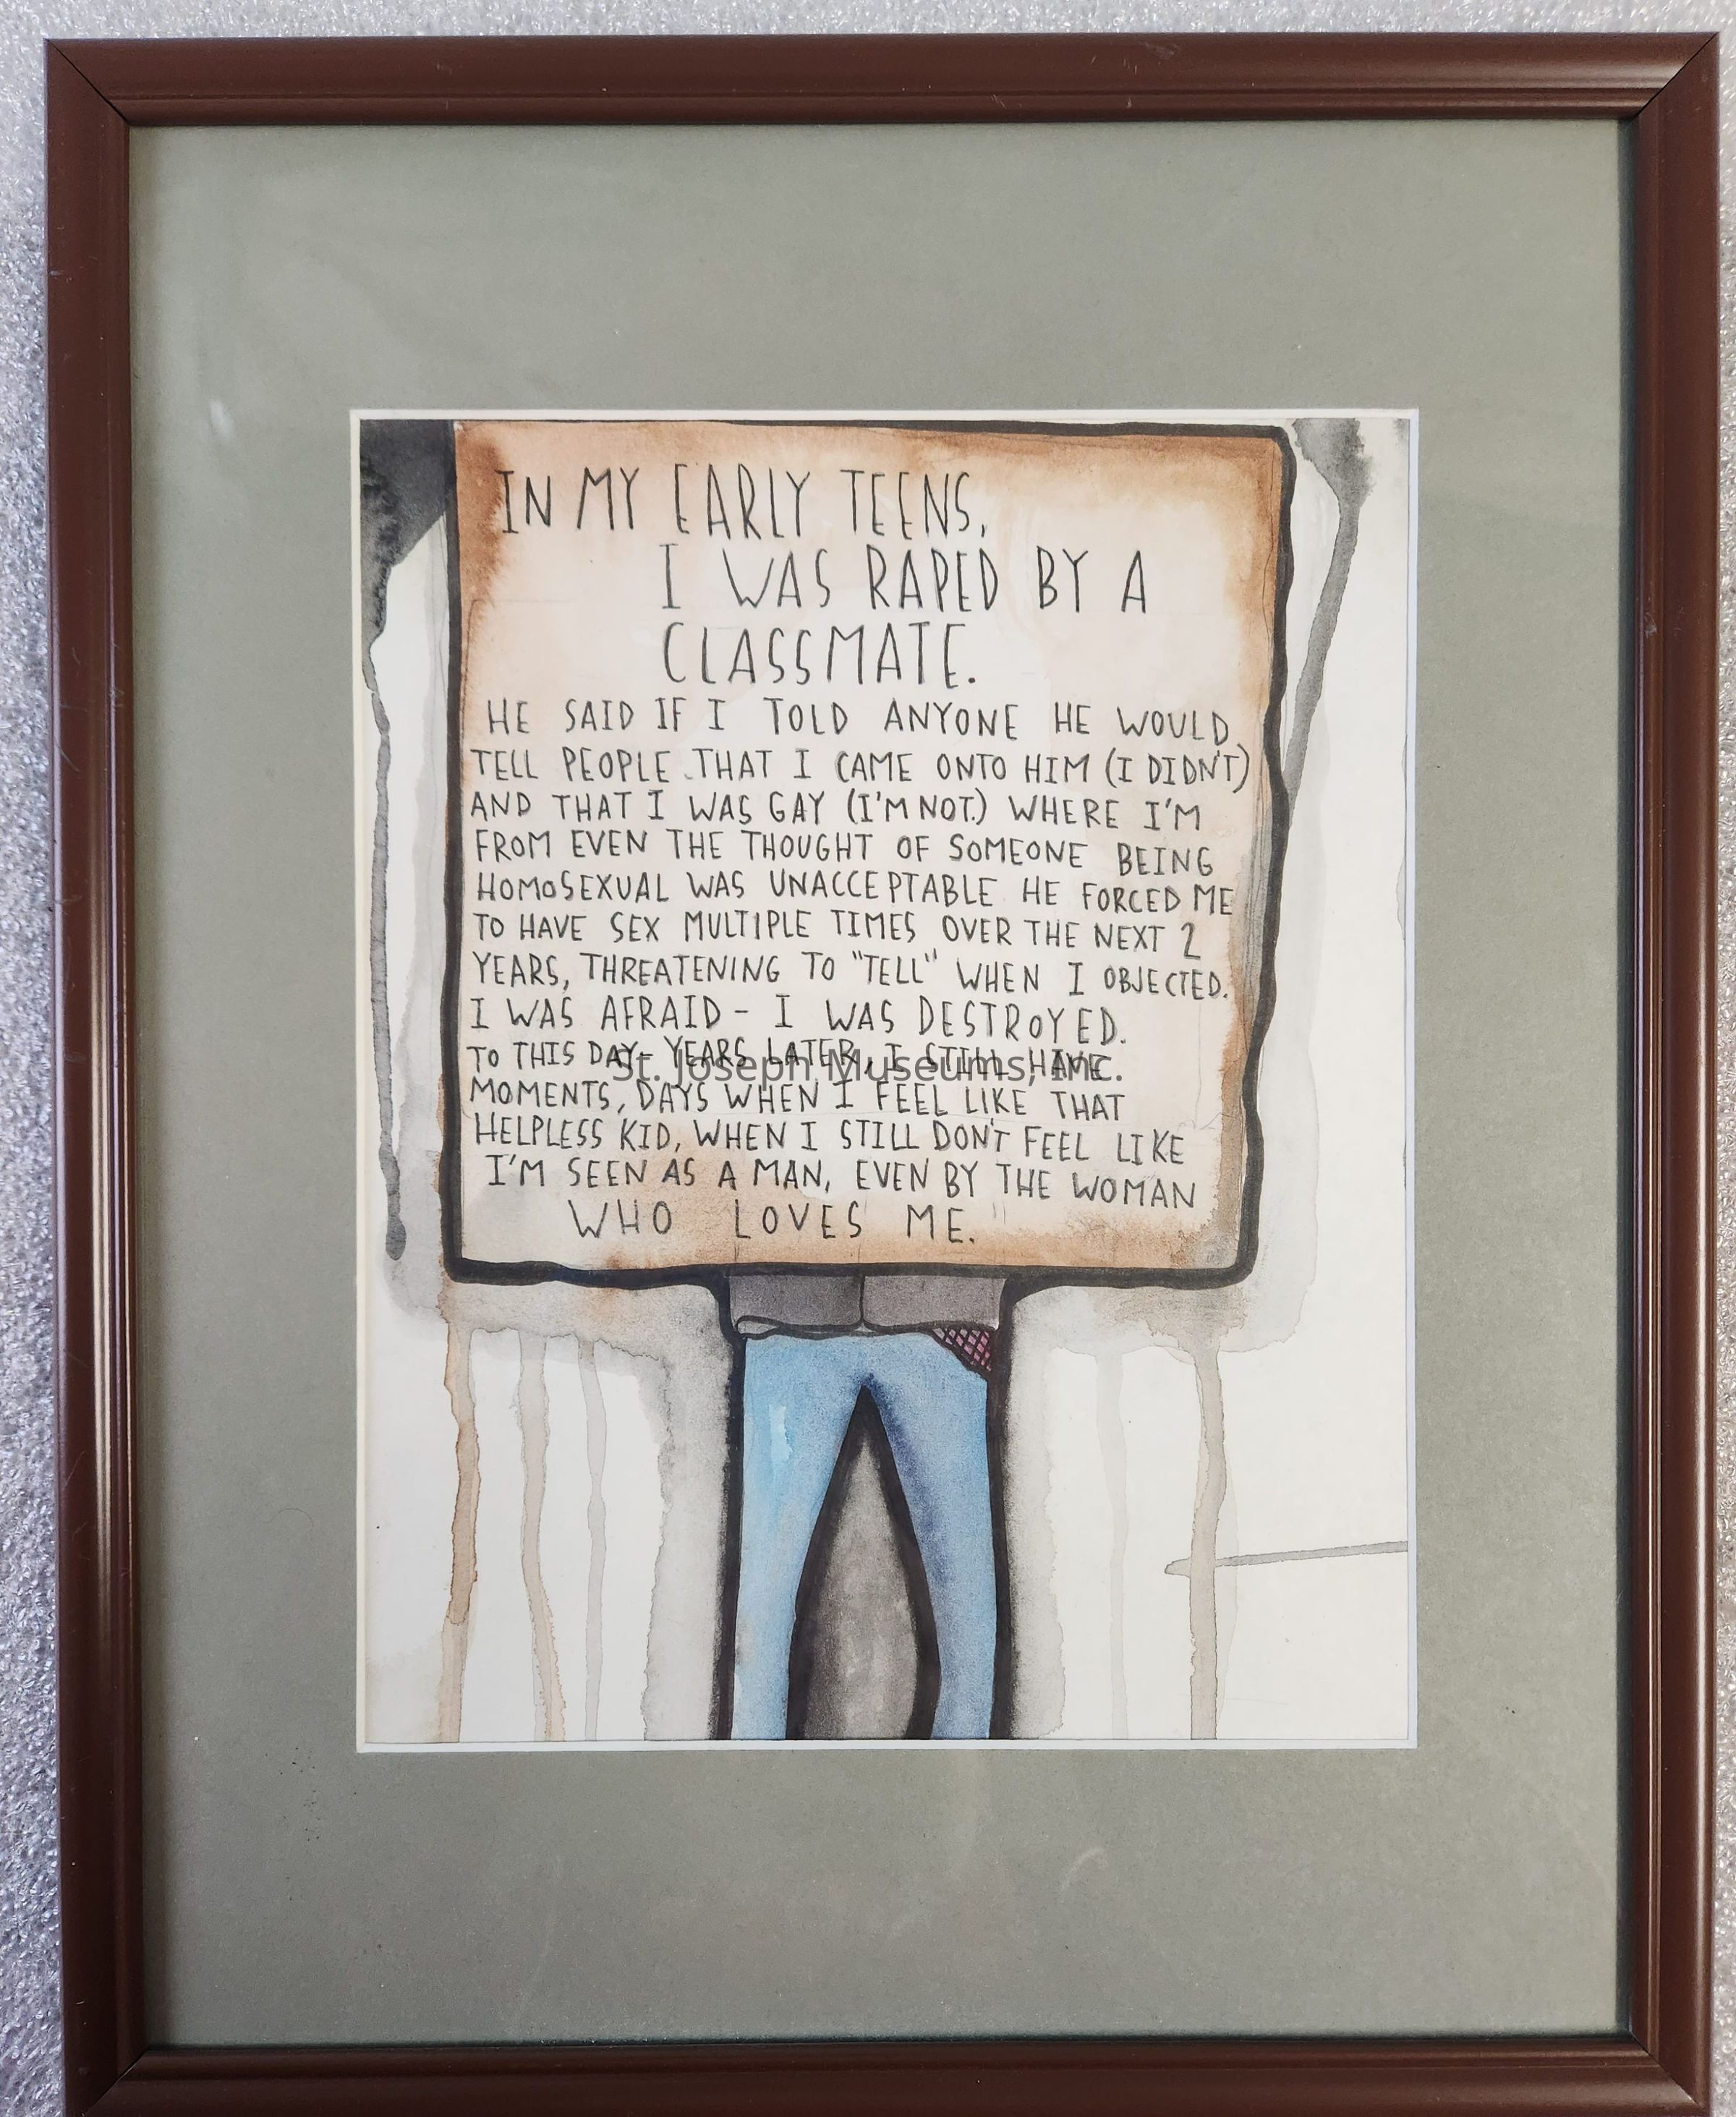 IN MY EARLY TEENS,
I WAS RAPED BY A
CLASSMATE.
HE SAID IF I TOLD ANYONE HE WOULD
TELL PEOPLE THAT I CAME ONTO HIM (I DIDN'T)
AND THAT I WAS GAY (I'M NOT.) WHERE I'M
FROM EVEN THE THOUGHT OF SOMEONE BEING
HOMOSEXUAL WAS UNACCEPTABLE HE FORCED ME
TO HAVE SEX MULTIPLE TIMES OVER THE NEXT 2
YEARS, THREATENING TO "TELL" WHEN I OBJECTED.
I WAS AFRAID - I WAS DESTROYED.
TO THIS DAY- YEARS LATER, I STILL HAVE
St. Joseph Museums, Inc.
MOMENTS, DAYS WHEN I FEEL LIKE THAT
HELPLESS KID, WHEN I STILL DON'T FEEL LIKE
I'M SEEN AS A MAN, EVEN BY THE WOMAN
WHO LOVES ME.